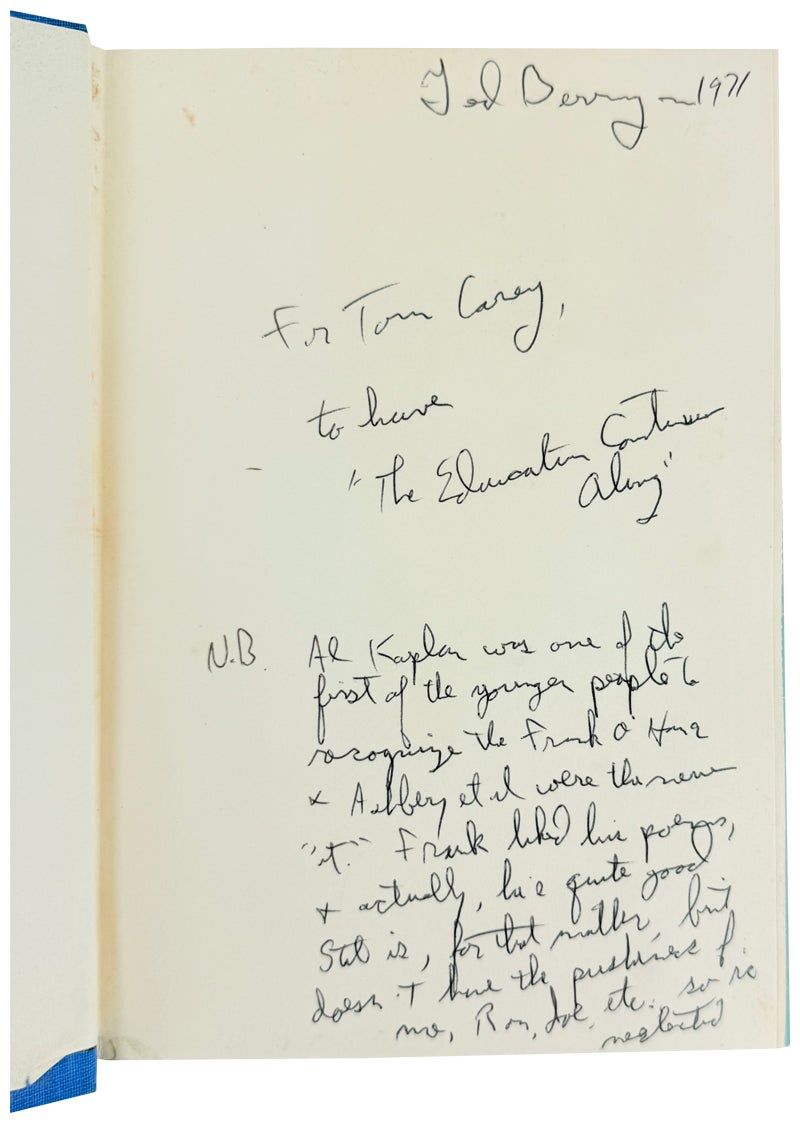 Ted Berrigan 1971
For Tom Carey,
to have
"The Education Continues
Along"
N.B. Al Kaplan was one of the
first of the younger people to
recognize the Frank O'Hara
& Ashbery et al were the new
"it." Frank liked his poems,
& actually, he's quite good
Still is, for that matter, but
doesn't have the pushiness of
me, Ron, Joe, etc. so is
neglected